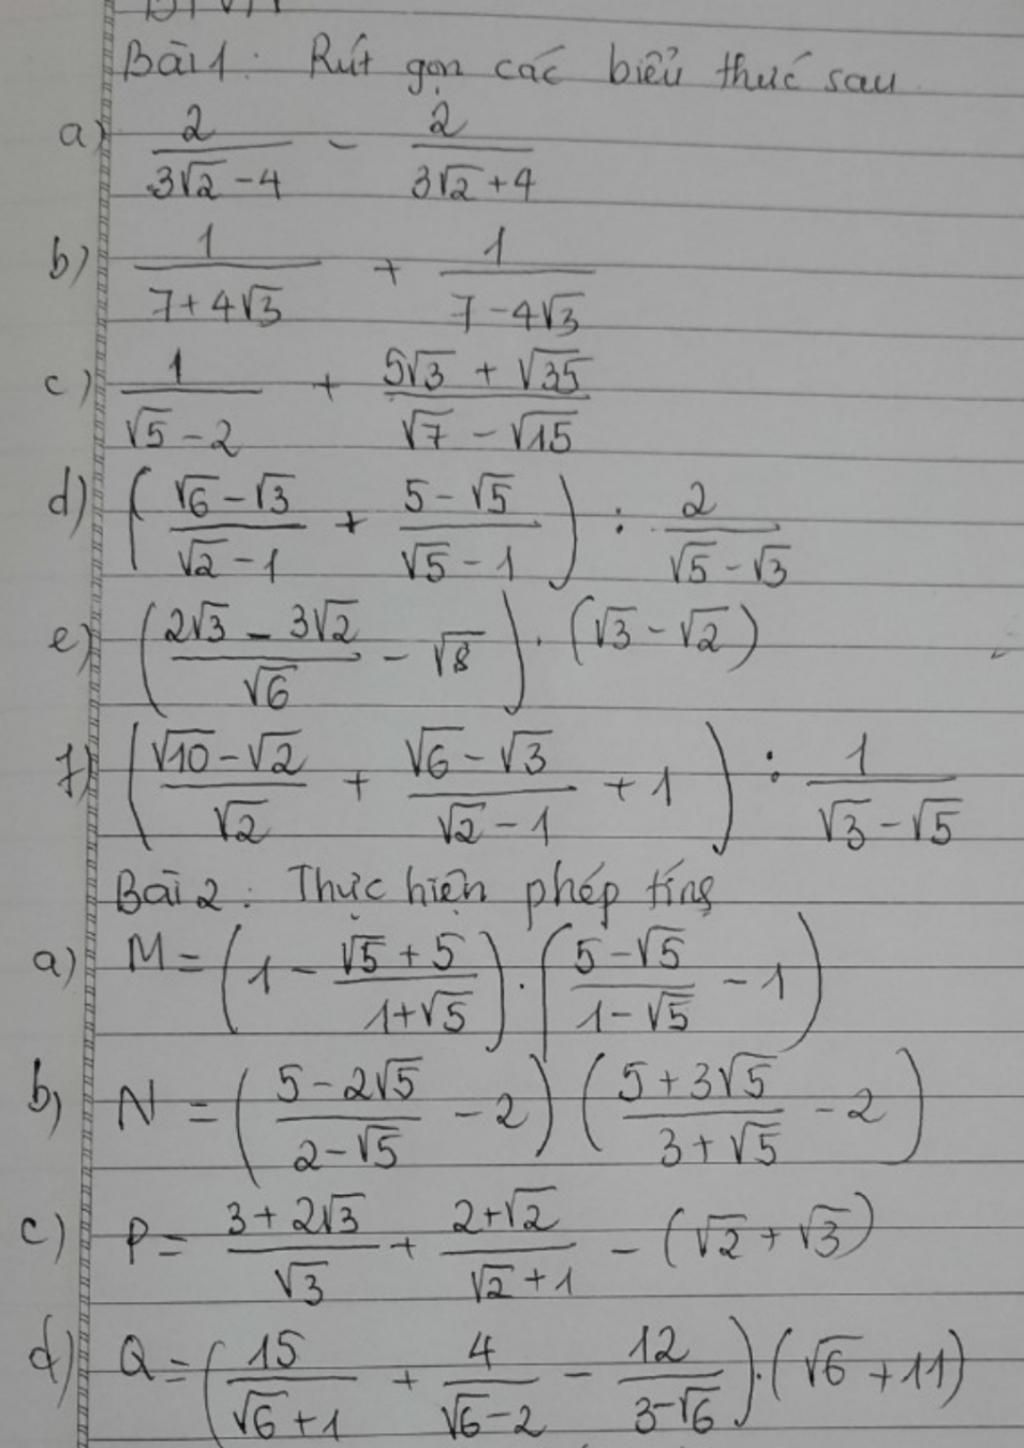 Bài 1: Rút gọn các biểu thức sau
a) 2/(3√2 - 4) - 2/(3√2 + 4)
b) 1/(7 + 4√3) + 1/(7 - 4√3)
c) 1/(√5 - 2) + (5√3 + √35)/(√7 - √15)
d) ((√6 - √3)/(√2 - 1) + (5 - √5)/(√5 - 1)) : 2/(√5 - √3)
e) ((2√3 - 3√2)/√6 - √8) . (√3 - √2)
f) ((√10 - √2)/√2 + (√6 - √3)/(√2 - 1) + 1) : 1/(√3 - √5)
Bài 2: Thực hiện phép tính
a) M = (1 - (√5 + 5)/(1 + √5)) . ((5 - √5)/(1 - √5) - 1)
b) N = ((5 - 2√5)/(2 - √5) - 2) ((5 + 3√5)/(3 + √5) - 2)
c) P = (3 + 2√3)/√3 + (2 + √2)/(√2 + 1) - (√2 + √3)
d) Q = (15/(√6 + 1) + 4/(√6 - 2) - 12/(3 - √6)) . (√6 + 11)